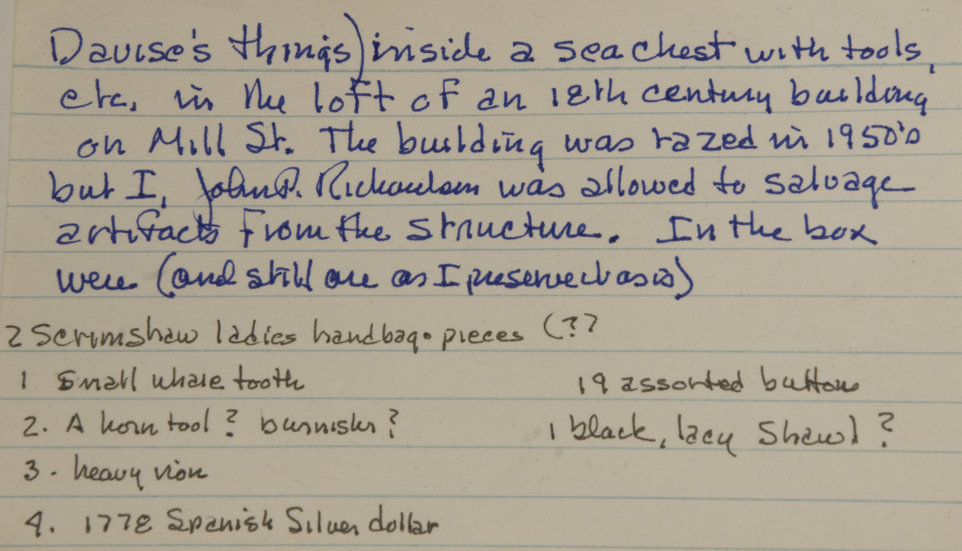 Davise's things) inside a sea chest with tools,
etc. in the loft of an 18th century building
on Mill St. The building was razed in 1950's
but I, John P. Richardson was allowed to salvage
artifacts from the structure. In the box
were (and still are as I preserved as is)
2 Scrimshaw ladies handbag pieces (??
1 Small whale tooth 19 assorted buttons
2. A horn tool? burnisher? 1 black, lacy Shawl?
3 - heavy
4. 1778 Spanish Silver dollar